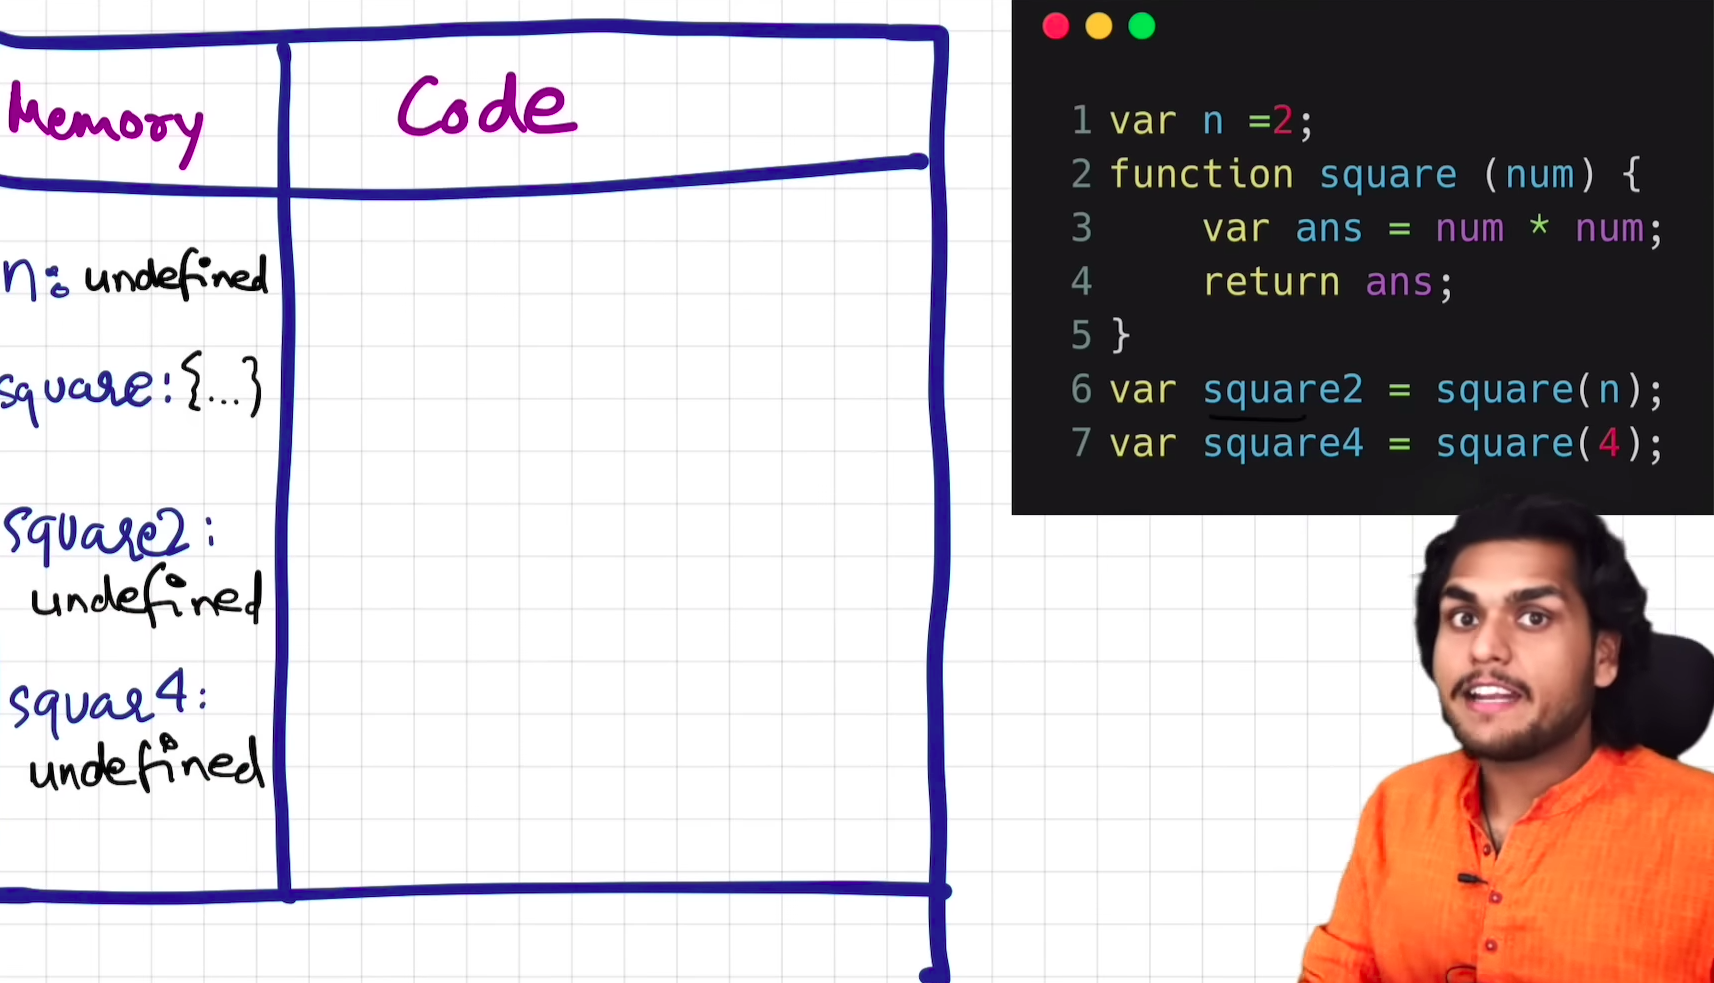 Memory
Code
n: undefined
square: {...}
square2:
undefined
squar4:
undefined
1 var n =2;
2 function square (num) {
3 var ans = num * num;
4 return ans;
5 }
6 var square2 = square(n);
7 var square4 = square(4);